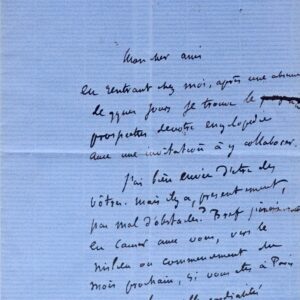 Mon cher ami
En rentrant chez moi, après une absence
de qques jours je trouve le
prospectus de votre encyclopédie
avec une invitation à y collaborer.
J'ai bien envie d'être des
vôtres. mais il y a, présentement,
pas mal d'obstacles? Bref j'irais
en causer avec vous, vers le
milieu ou commencement du
mois prochain, si vous êtes à Paris